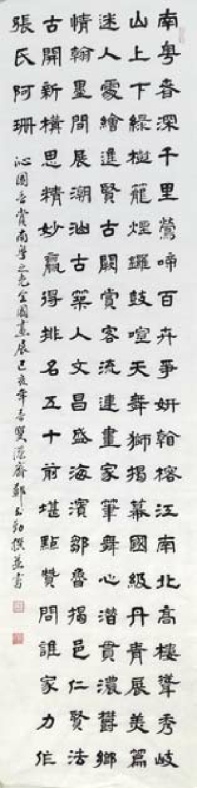 南粤春深千里鶯啼百卉爭妍翰榕江南北高樓聳秀岐
山上下綠樹籠煙鑼鼓喧天舞獅揭幕國級丹青展美篇
迷人處繪進賢古闕賞客流連畫家筆舞心潛貫濃鬱鄉
情翰墨間展潮汕古築人文昌盛海濱鄒魯揭邑仁賢法
古開新構思精妙贏得排名五十前堪點贊問誰家力作
張氏阿珊
沁園春賞南粤之光全國畫展己亥年春雙齋鄭撰並書